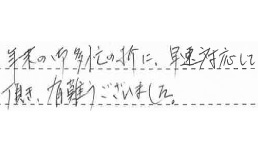 年末の御多忙の折に、早速対応して
頂き、有難うございました。